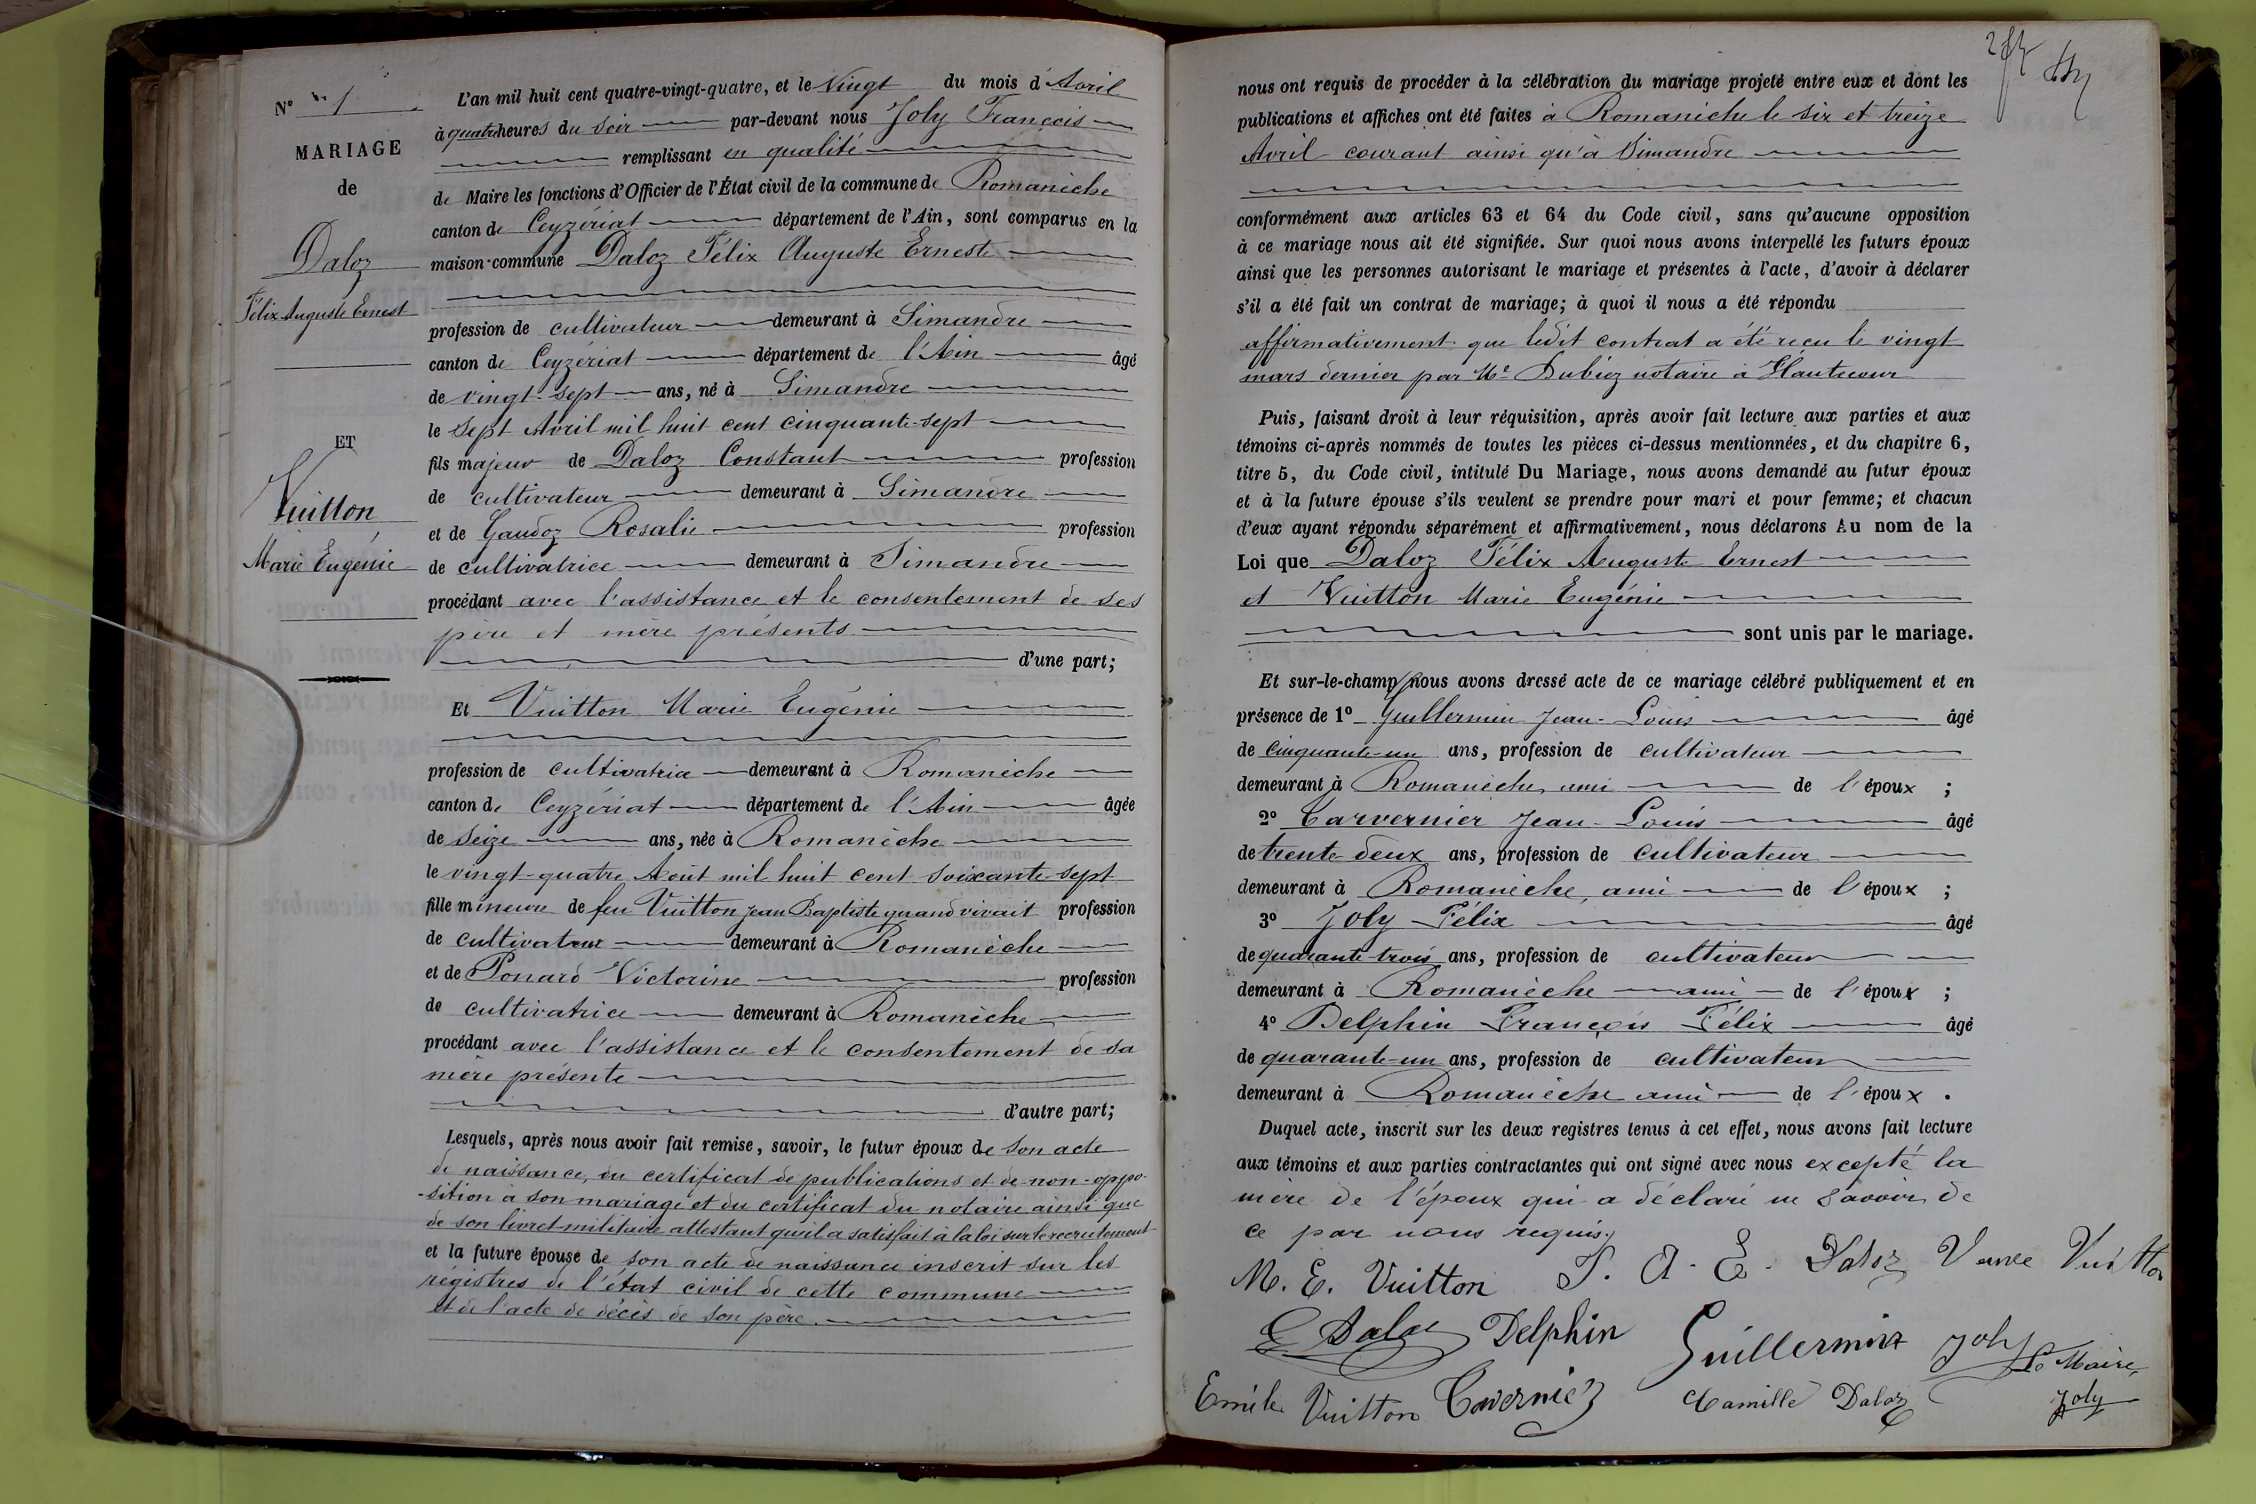 N° 1
MARIAGE
de
Daloz
Félix Auguste Ernest
ET
Vuitton
Marie Eugénie
L'an mil huit cent quatre-vingt-quatre, et le Vingt du mois d'Avril
à quatre heures du soir par-devant nous Joly François
remplissant en qualité
de Maire les fonctions d'Officier de l'État civil de la commune de Romanèche
canton de Ceyzériat département de l'Ain, sont comparus en la
maison-commune Daloz Félix Auguste Ernest
profession de cultivateur demeurant à Simandre
canton de Ceyzériat département de l'Ain âgé
de vingt-sept ans, né à Simandre
le sept Avril mil huit cent cinquante-sept
fils majeur de Daloz Constant profession
de cultivateur demeurant à Simandre
et de Gaudoz Rosalie profession
de cultivatrice demeurant à Simandre
procédant avec l'assistance et le consentement de ses
père et mère présents
d'une part;
Et Vuitton Marie Eugénie
profession de cultivatrice demeurant à Romanèche
canton de Ceyzériat département de l'Ain âgée
de seize ans, née à Romanèche
le vingt-quatre Août mil huit cent soixante-sept
fille mineure de feu Vuitton Jean Baptiste quand vivait profession
de cultivateur demeurant à Romanèche
et de Ponard Victorine profession
de cultivatrice demeurant à Romanèche
procédant avec l'assistance et le consentement de sa
mère présente
d'autre part;
Lesquels, après nous avoir fait remise, savoir, le futur époux de son acte
de naissance, du certificat de publications et de non-oppo-
-sition à son mariage et du certificat du notaire ainsi que
de son livret militaire attestant qu'il a satisfait à la loi sur le recrutement
et la future épouse de son acte de naissance inscrit sur les
régistres de l'état civil de cette commune
et de l'acte de décès de son père
nous ont requis de procéder à la célébration du mariage projeté entre eux et dont les
publications et affiches ont été faites à Romanèche le six et treize
Avril courant ainsi qu'à Simandre
conformément aux articles 63 et 64 du Code civil, sans qu'aucune opposition
à ce mariage nous ait été signifiée. Sur quoi nous avons interpellé les futurs époux
ainsi que les personnes autorisant le mariage et présentes à l'acte, d'avoir à déclarer
s'il a été fait un contrat de mariage; à quoi il nous a été répondu
affirmativement que ledit contrat a été reçu le vingt
mars dernier par Me Dubiez notaire à Hautecour
Puis, faisant droit à leur réquisition, après avoir fait lecture aux parties et aux
témoins ci-après nommés de toutes les pièces ci-dessus mentionnées, et du chapitre 6,
titre 5, du Code civil, intitulé Du Mariage, nous avons demandé au futur époux
et à la future épouse s'ils veulent se prendre pour mari et pour femme; et chacun
d'eux ayant répondu séparément et affirmativement, nous déclarons Au nom de la
Loi que Daloz Félix Auguste Ernest
et Vuitton Marie Eugénie
sont unis par le mariage.
Et sur-le-champ nous avons dressé acte de ce mariage célébré publiquement et en
présence de 1° Guillermin Jean-Louis âgé
de cinquante-un ans, profession de cultivateur
demeurant à Romanèche, ami de l'époux ;
2° Carvernier Jean-Louis âgé
de trente-deux ans, profession de cultivateur
demeurant à Romanèche, ami de l'époux ;
3° Joly Félix âgé
de quarante-trois ans, profession de cultivateur
demeurant à Romanèche ami de l'époux ;
4° Delphin François Félix âgé
de quarante-un ans, profession de cultivateur
demeurant à Romanèche ami de l'époux .
Duquel acte, inscrit sur les deux registres tenus à cet effet, nous avons fait lecture
aux témoins et aux parties contractantes qui ont signé avec nous excepté la
mère de l'époux qui a déclaré ne savoir de
ce par nous requis.
M. E. Vuitton F. A. E. Daloz Veuve Vuitton
C Daloz Delphin Guillermin Joly Le Maire,
Emile Vuitton Cavernier Camille Daloz Joly